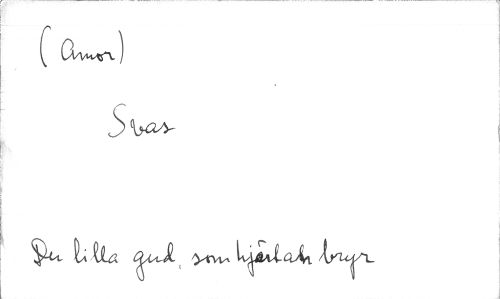 (Amor)
Svar
Du lilla gud, som hjärtan bryr